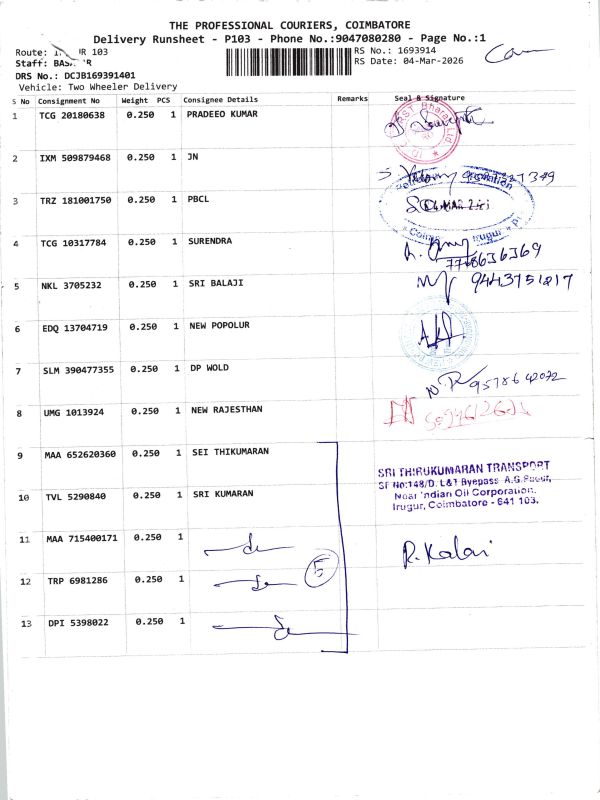 THE PROFESSIONAL COURIERS, COIMBATORE
Delivery Runsheet - P103 - Phone No.:9047080280 - Page No.:1
Route: 103
RS No.: 1693914
Staff:
RS Date: 04-Mar-2026
DRS No.: DCJB169391401
Vehicle: Two Wheeler Delivery
S No Consignment No Weight PCS Consignee Details Remarks Seal & Signature
1 TCG 20180638 0.250 1 PRADEEO KUMAR
2 IXM 509879468 0.250 1 JN
3 TRZ 181001750 0.250 1 PBCL
4 TCG 10317784 0.250 1 SURENDRA
7708636369
5 NKL 3705232 0.250 1 SRI BALAJI
9443751817
6 EDQ 13704719 0.250 1 NEW POPOLUR
7 SLM 390477355 0.250 1 DP WOLD
9578642072
8 UMG 1013924 0.250 1 NEW RAJESTHAN
9 MAA 652620360 0.250 1 SEI THIKUMARAN
SRI THIRUKUMARAN TRANSPORT
SF No:148/D, L&T Byepass A.G.Pudur,
Near Indian Oil Corporation,
Irugur, Coimbatore - 641 103.
10 TVL 5290840 0.250 1 SRI KUMARAN
11 MAA 715400171 0.250 1
R. Kalai
12 TRP 6981286 0.250 1
5
13 DPI 5398022 0.250 1